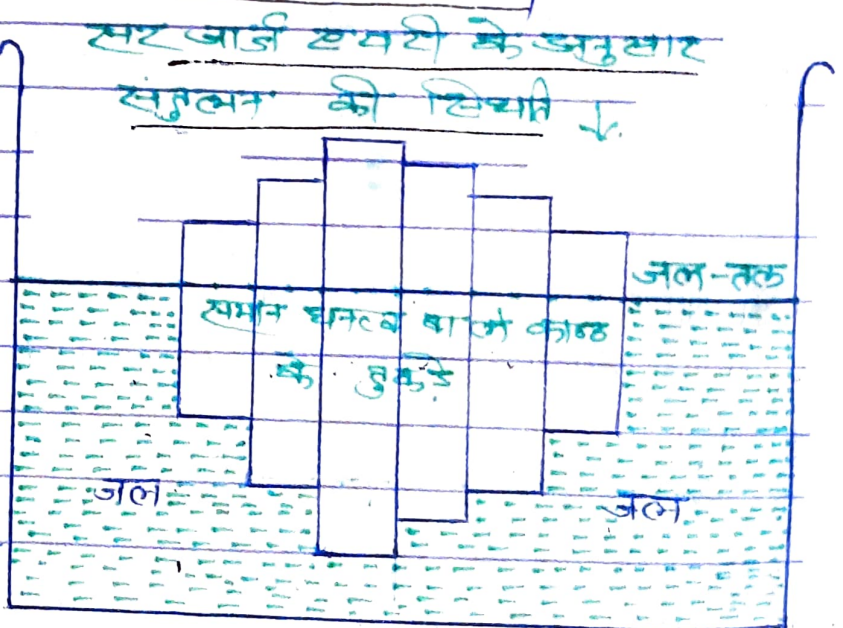 सर जार्ज एयरी के अनुसार
संतुलन की स्थिति
जल-तल
समान घनत्व वाले काष्ठ
के टुकड़े
जल
जल